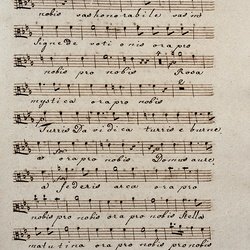 nobis vas honorabile vas in
signe de voti onis ora pro
nobis pro nobis Rosa
mystica ora pro nobis
Turris Da vi dica turris e burne
a ora pro nobis Domus aure
a federis arca ora pro
nobis pro nobis ora pro nobis Stella
matutina ora pro nobis pro nobis